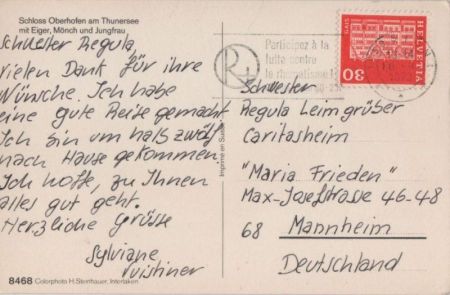 Schloss Oberhofen am Thunersee
mit Eiger, Mönch und Jungfrau
Schwester Regula
Vielen Dank für ihre
Wünsche. Ich habe
eine gute Reise gemacht
Ich bin um halb zwölf
nach Hause gekommen
Ich hoffe, zu Ihnen
alles gut geht.
Herzliche Grüsse
Sylviane
8468 Colorphoto H. Steinhauer, Interlaken
Imprimé en Suisse
R+
Participez à la
lutte contre
le rhumatisme!
HELVETIA
30
Schwester
Regula Leimgrüber
Caritasheim
"Maria Frieden"
Max-Josefstrasse 46-48
68 Mannheim
Deutschland